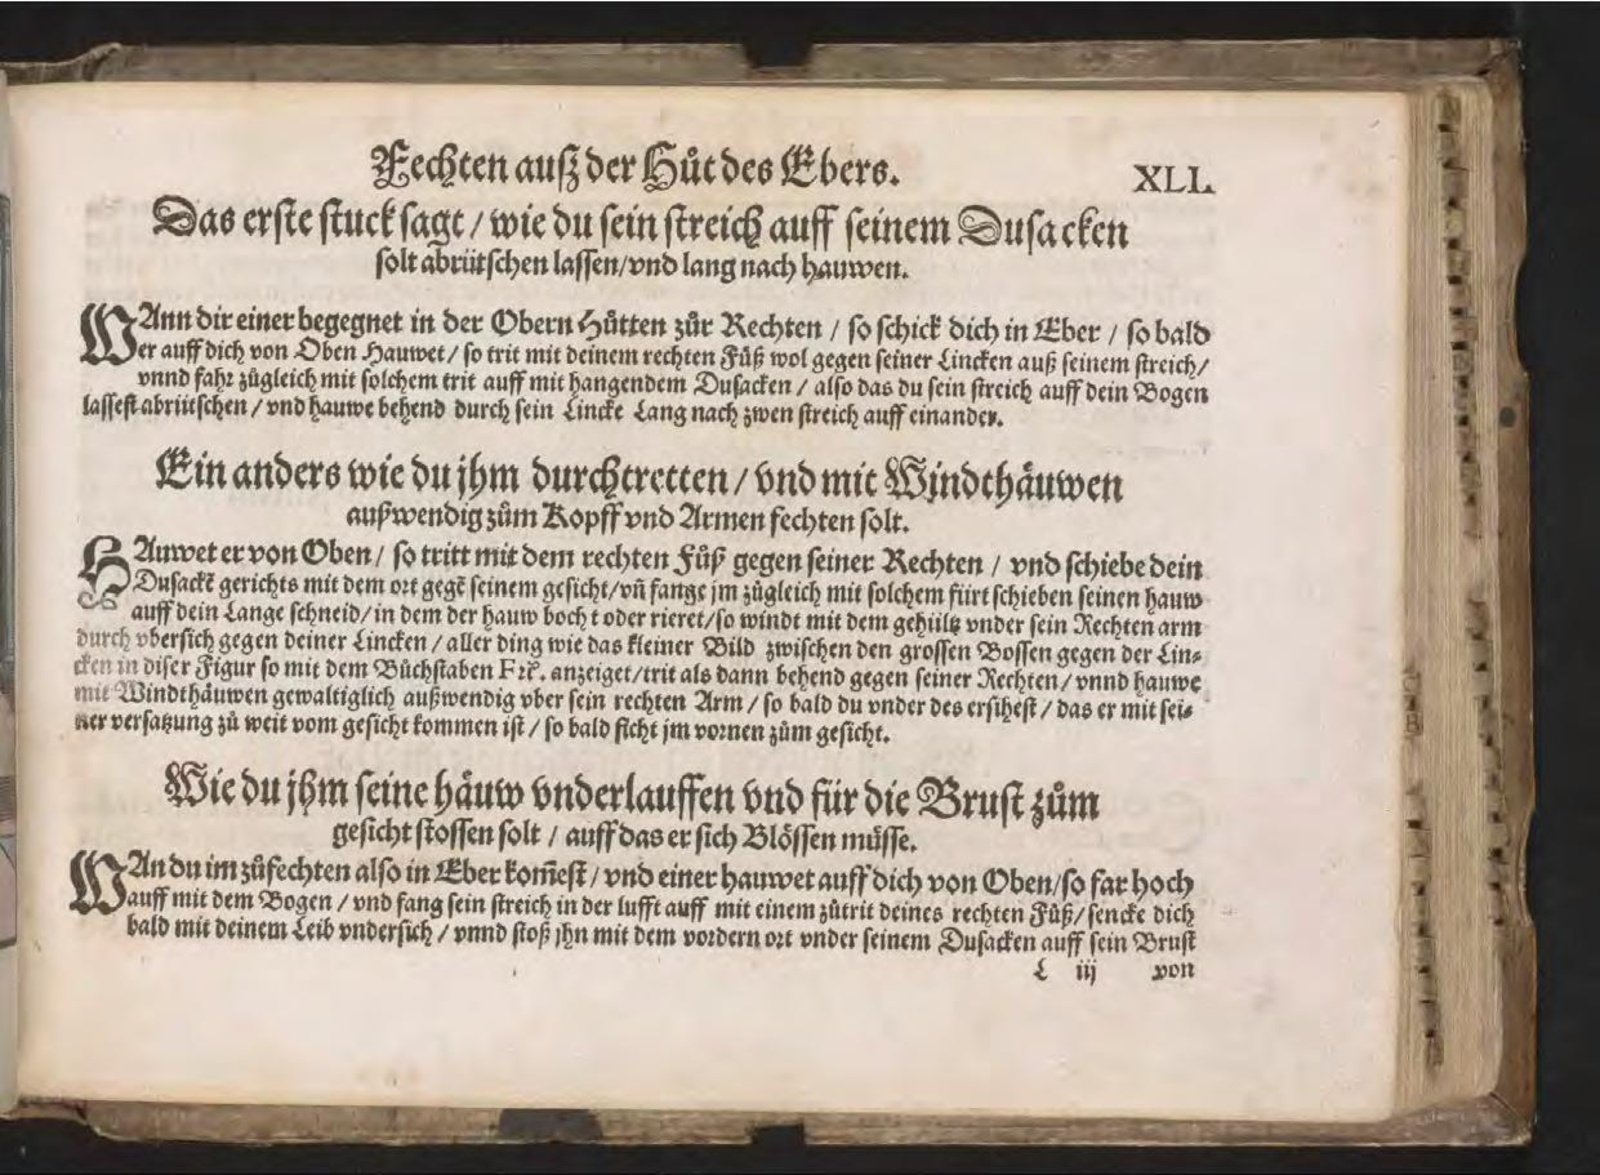 Fechten außz der Hůt des Ebers.
XLI.
Das erste stuck sagt / wie du sein streich auff seinem Dusacken
solt abrütschen lassen/vnd lang nach hauwen.
WAnn dir einer begegnet in der Obern Hůtten zůr Rechten / so schick dich in Eber / so bald
er auff dich von Oben Hauwet/ so trit mit deinem rechten Fůß wol gegen seiner Lincken auß seinem streich/
vnnd fahr zůgleich mit solchem trit auff mit hangendem Dusacken / also das du sein streich auff dein Bogen
lassest abrütschen / vnd hauwe behend durch sein Lincke Lang nach zwen streich auff einander.
Ein anders wie du jhm durchtretten / vnd mit Windthåuwen
außwendig zům Kopff vnd Armen fechten solt.
HAuwet er von Oben / so tritt mit dem rechten Fůß gegen seiner Rechten / vnd schiebe dein
Dusackē gerichts mit dem ort gegē seinem gesicht/vñ fange jm zůgleich mit solchem fürt schieben seinen hauw
auff dein Lange schneid/ in dem der hauw bocht oder rieret/so windt mit dem gehültz vnder sein Rechten arm
durch vbersich gegen deiner Lincken / aller ding wie das kleiner Bild zwischen den grossen Bossen gegen der Lin⸗
cken in diser Figur so mit dem Bůchstaben F rč. anzeiget/trit als dann behend gegen seiner Rechten/ vnnd hauwe
mit Windthåuwen gewaltiglich außwendig vber sein rechten Arm / so bald du vnder des ersihest / das er mit sei⸗
ner versatzung zů weit vom gesicht kommen ist / so bald sicht jm vornen zům gesicht.
Wie du jhm seine håuw vnderlauffen vnd für die Brust zům
gesicht stossen solt / auff das er sich Blössen müsse.
WAn du im zůfechten also in Eber kom̄est / vnd einer hauwet auff dich von Oben/so far hoch
auff mit dem Bogen / vnd fang sein streich in der lufft auff mit einem zůtrit deines rechten Fůß/ sencke dich
bald mit deinem Leib vndersich / vnnd stoß jhn mit dem vordern ort vnder seinem Dusacken auff sein Brust
L iij von